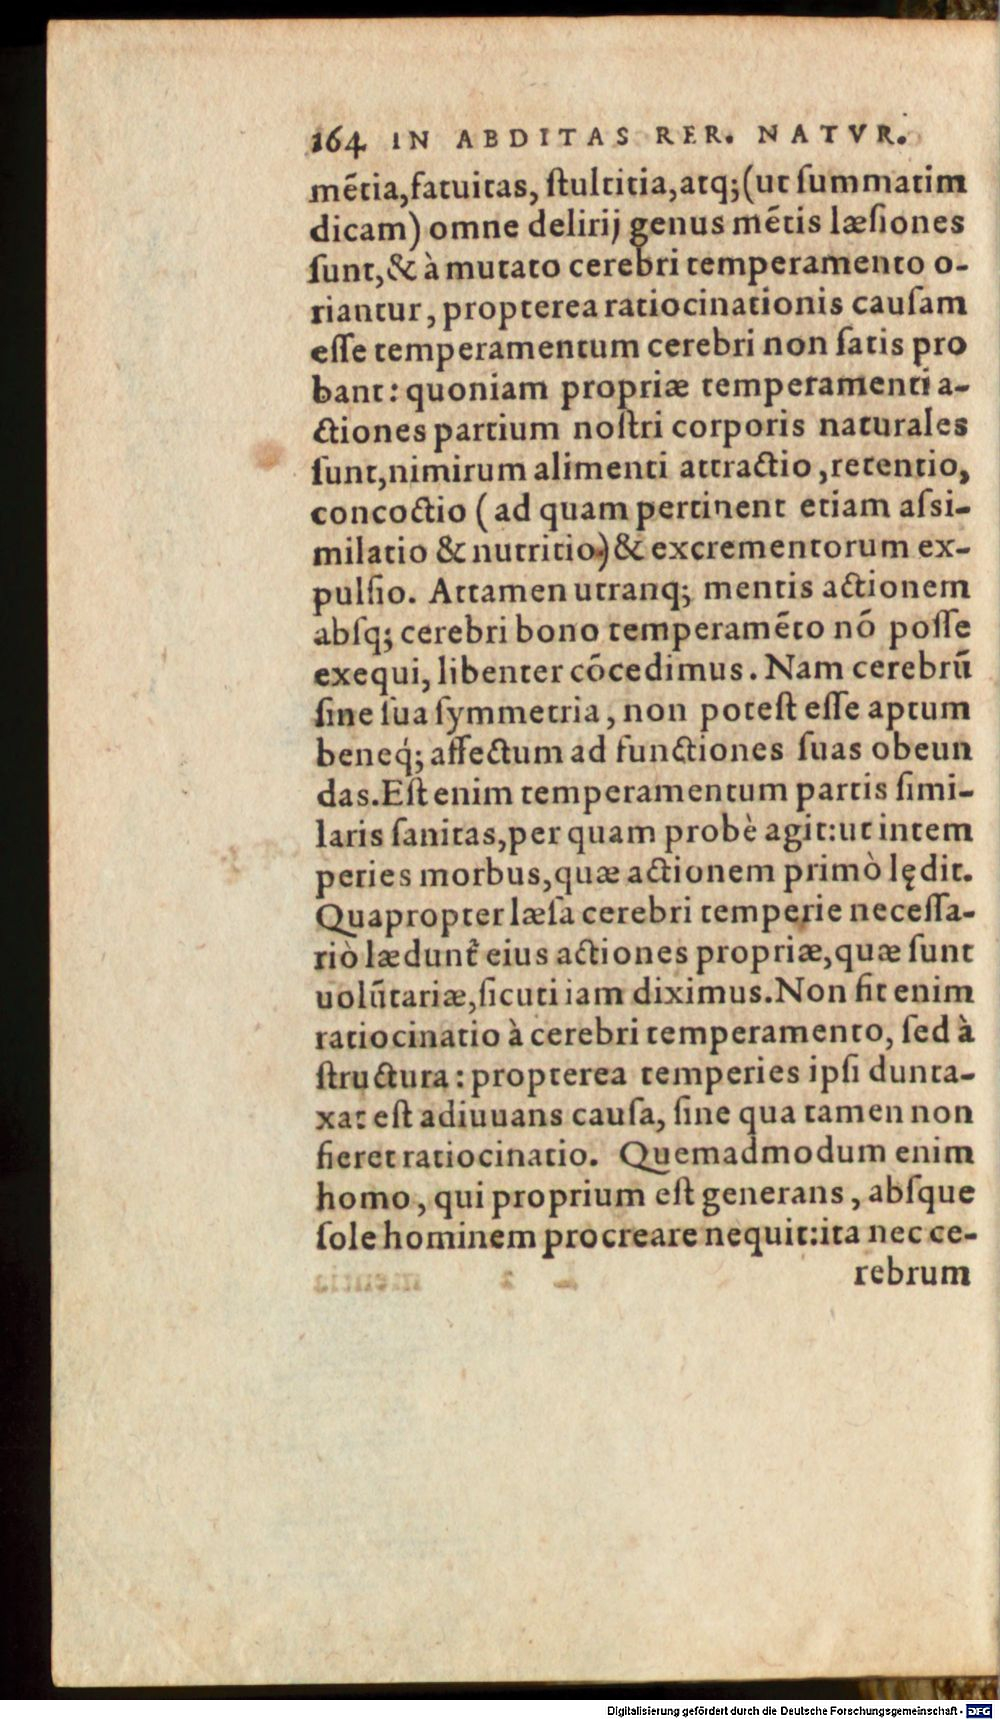 164 IN ABDITAS RER. NATVR.
mẽtia,fatuitas, ſtultitia,atq;(ut ſummatim
dicam) omne delirij genus mẽtis læſiones
ſunt,& à mutato cerebri temperamento o-
riantur, propterea ratiocinationis cauſam
eſſe temperamentum cerebri non ſatis pro
bant: quoniam propriæ temperamenti a-
ctiones partium noſtri corporis naturales
ſunt,nimirum alimenti attractio, retentio,
concoctio (ad quam pertinent etiam aſsi-
milatio & nutritio) & excrementorum ex-
pulſio. Attamen utranq; mentis actionem
abſq; cerebri bono temperamẽto nõ poſſe
exequi, libenter cõcedimus. Nam cerebrũ
ſine ſua ſymmetria, non poteſt eſſe aptum
beneq́; affectum ad functiones ſuas obeun
das.Eſt enim temperamentum partis ſimi-
laris ſanitas,per quam probè agit:ut intem
peries morbus,quæ actionem primò lędit.
Quapropter læſa cerebri temperie neceſſa-
riò lædunt᷑ eius actiones propriæ,quæ ſunt
uolũtariæ,ſicuti iam diximus.Non fit enim
ratiocinatio à cerebri temperamento, ſed à
ſtructura: propterea temperies ipſi dunta-
xat eſt adiuuans cauſa, ſine qua tamen non
fieret ratiocinatio. Quemadmodum enim
homo, qui proprium eſt generans, abſque
ſole hominem procreare nequit:ita nec ce-
rebrum
Digitalisierung gefördert durch die Deutsche Forschungsgemeinschaft - DFG